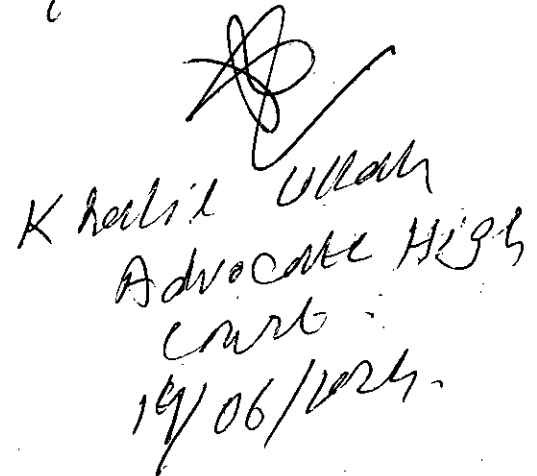 Khalil Ullah
Advocate High
Court.
19/06/2024.